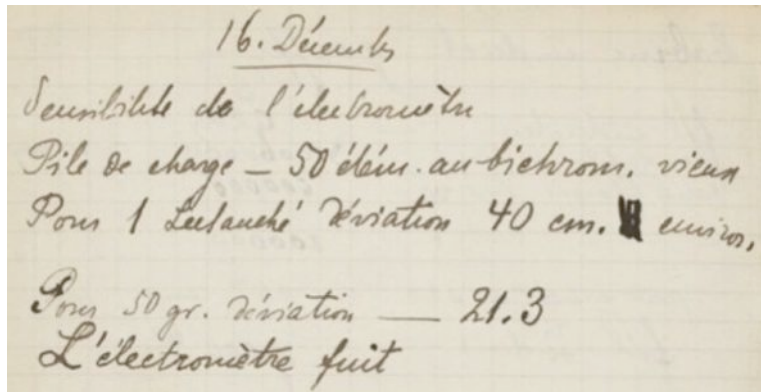 16. Décembre
Sensibilité de l'électromètre
Pile de charge — 50 élém. au bichrom. vieux
Pour 1 Leclanché déviation 40 cm. environ.
Pour 50 gr. déviation — 21.3
L'électromètre fuit